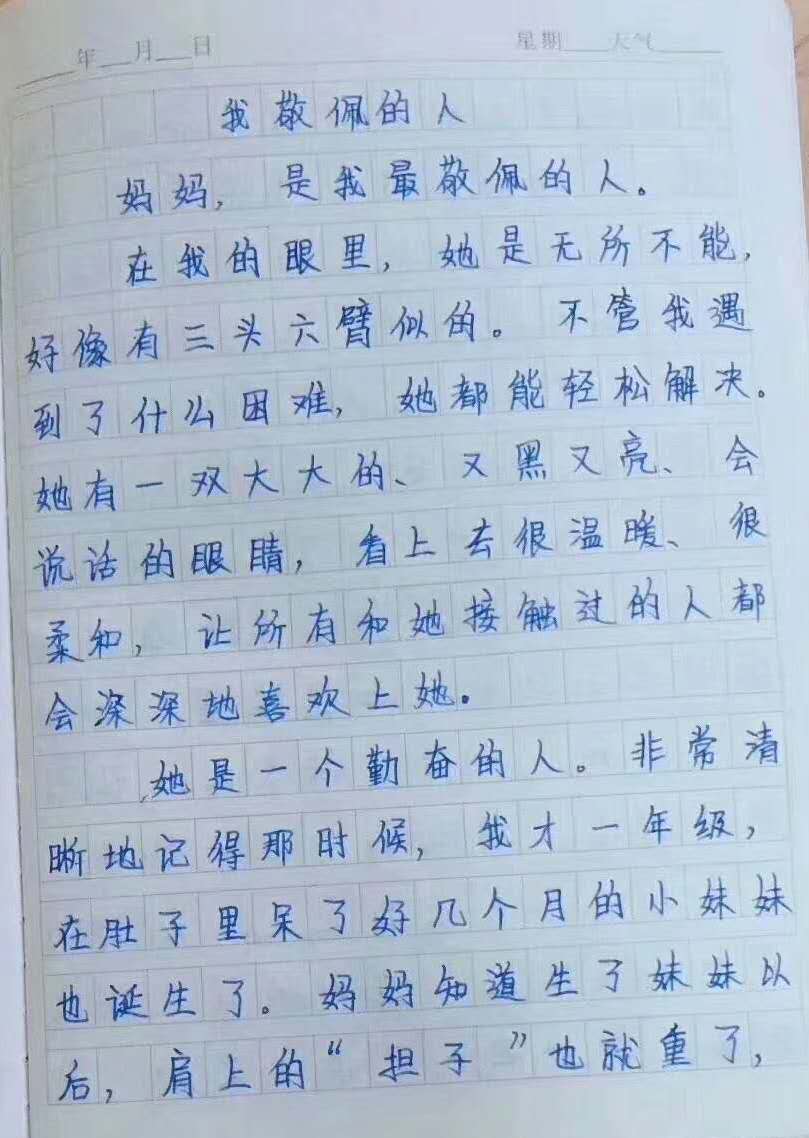 年 月 日 星期 天气
我敬佩的人
妈妈，是我最敬佩的人。
在我的眼里，她是无所不能，
好像有三头六臂似的。不管我遇
到了什么困难，她都能轻松解决。
她有一双大大的、又黑又亮、会
说话的眼睛，看上去很温暖、很
柔和，让所有和她接触过的人都
会深深地喜欢上她。
她是一个勤奋的人。非常清
晰地记得那时候，我才一年级，
在肚子里呆了好几个月的小妹妹
也诞生了。妈妈知道生了妹妹以
后，肩上的“担子”也就重了，